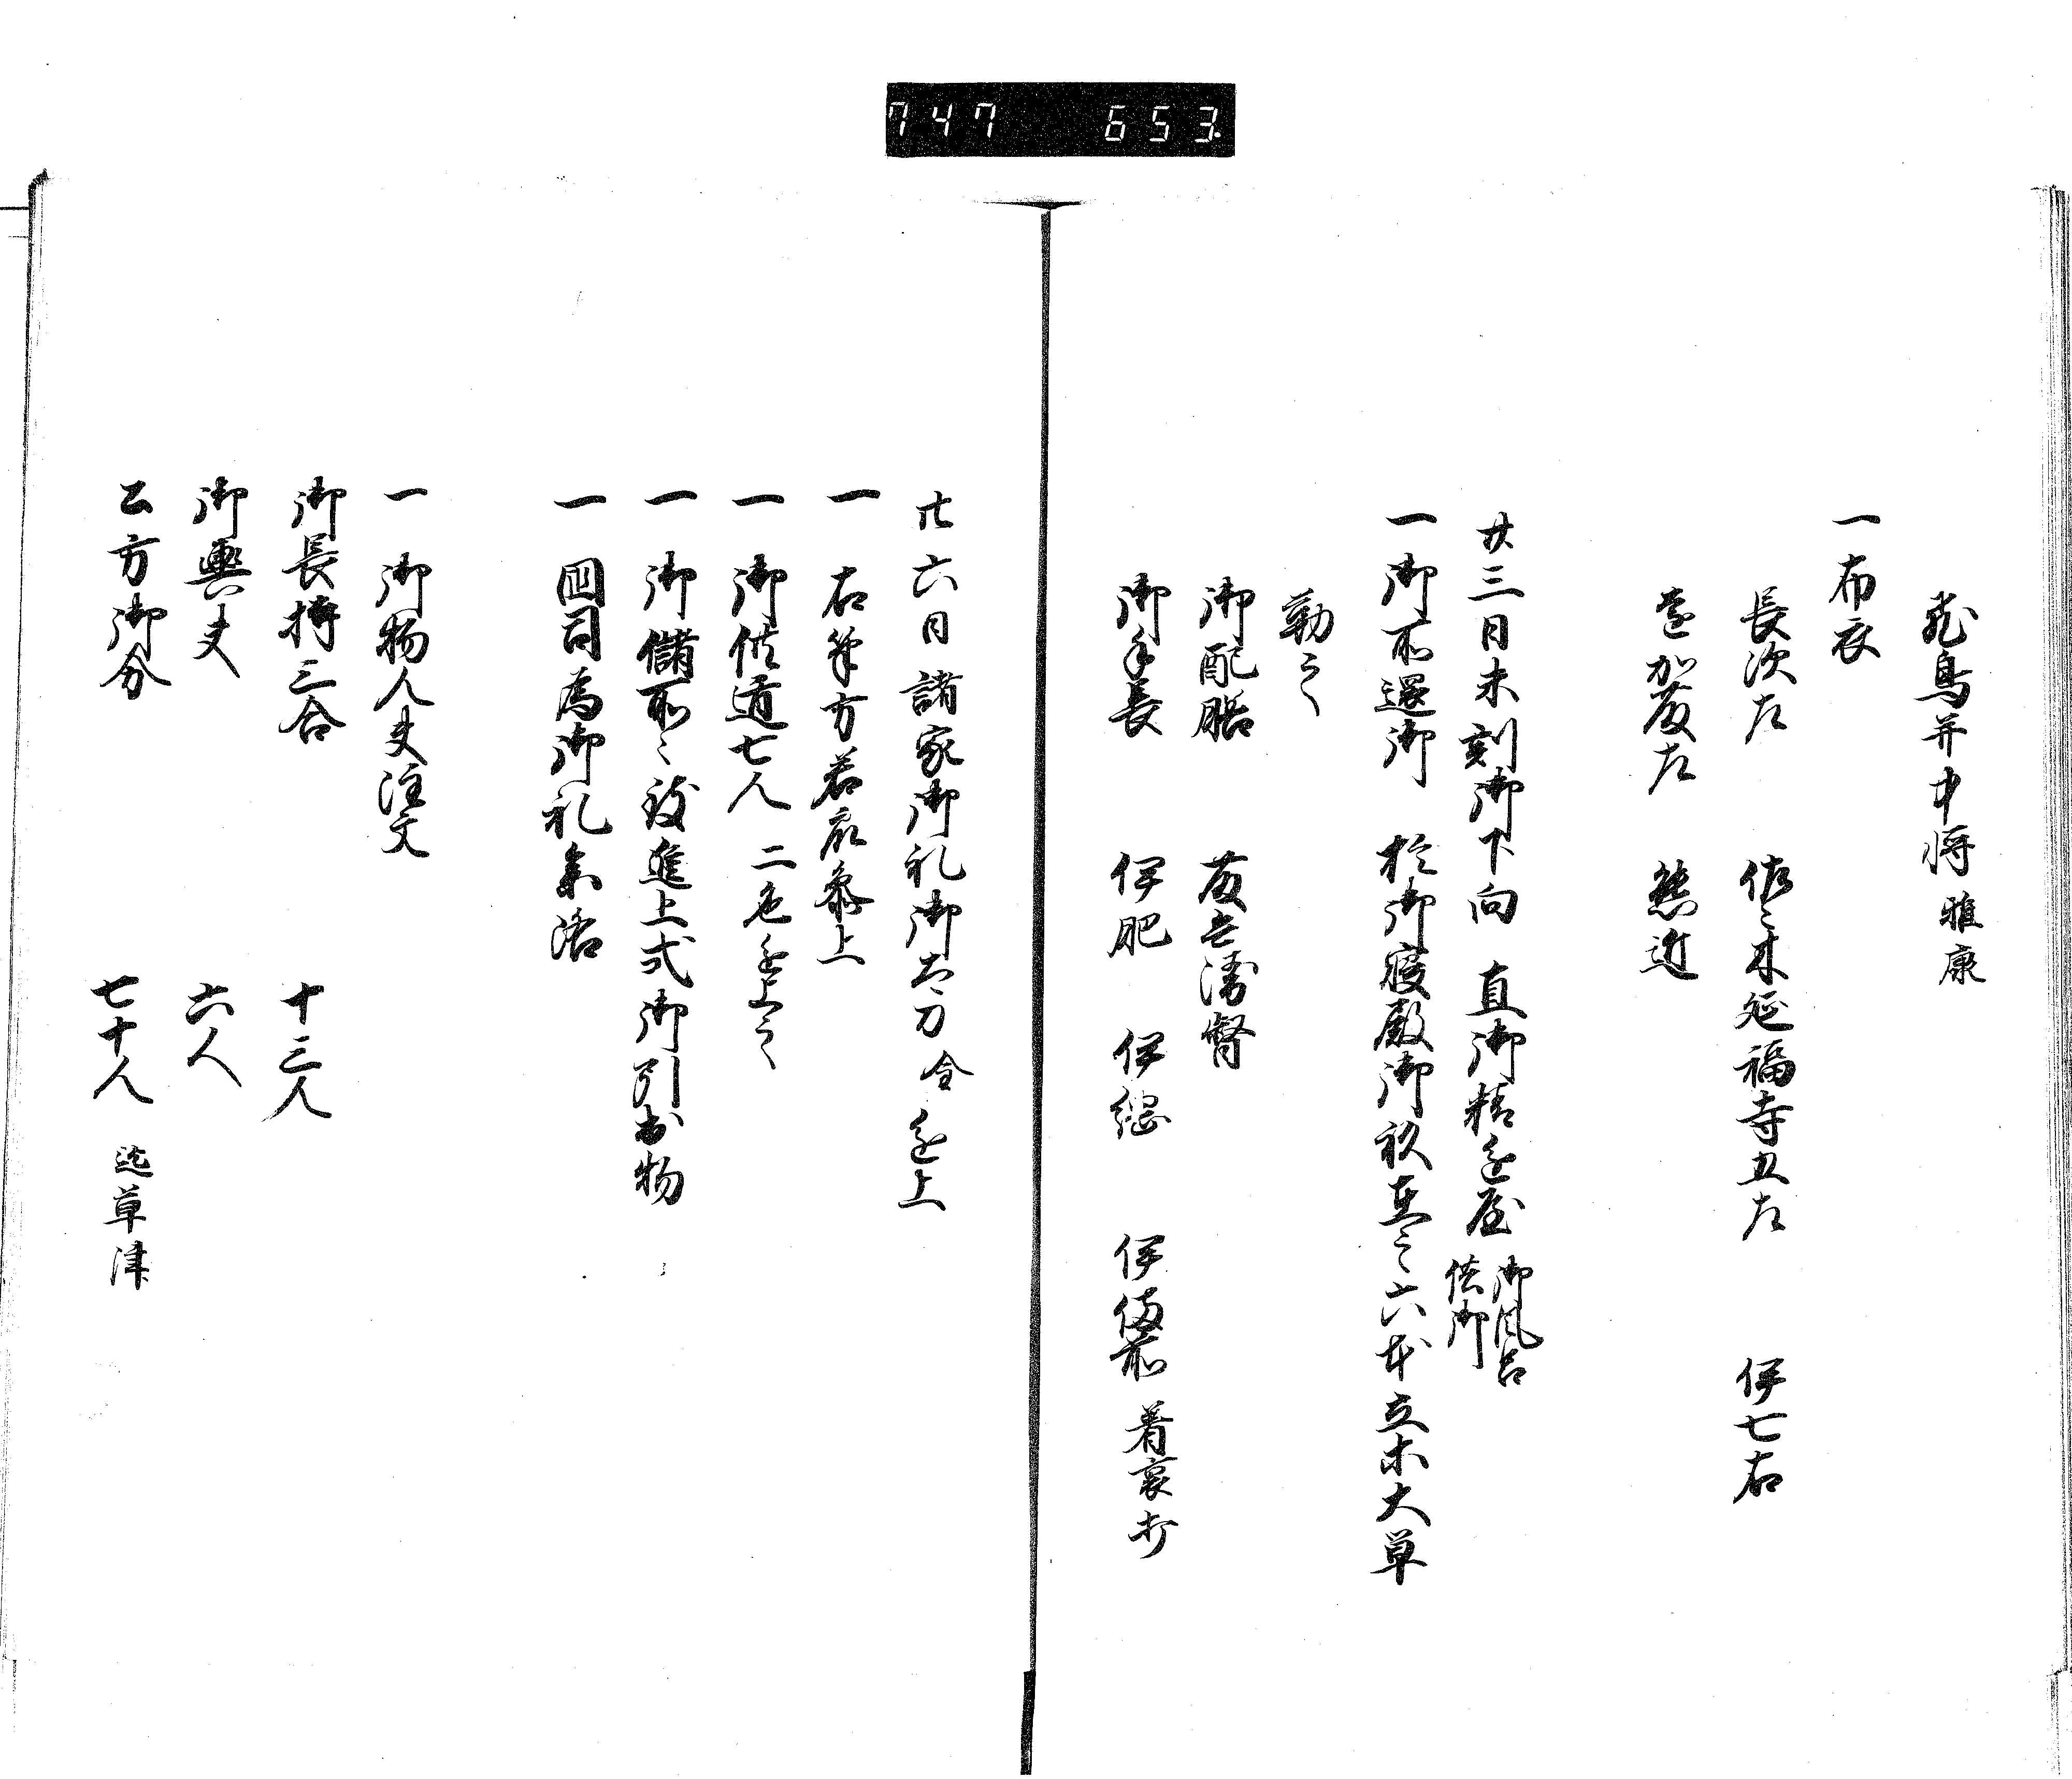 747 653
飛鳥井中将雅康
一布衣
長次左 佐々木延福寺五左 伊七右
遠加藤左 熊近
廿三日未刻御下向 直御精進屋 御風呂 供御
一御所還御 於御寝殿御祝在之 六本立 木大草
勤之
御配膳 藤兵衛督
御手長 伊肥 伊総 伊備前 着裏打
廿六日 諸家御礼 御太刀 金 進上
一 右筆方若衆参上
一 御供道七人 二色進上之
一 御儲所々致進上 式御引出物
一 国司為御礼参洛
一 御物人夫注文
御長持三合 十三人
御輿丈 六人
公方御分 七十人 迄草津